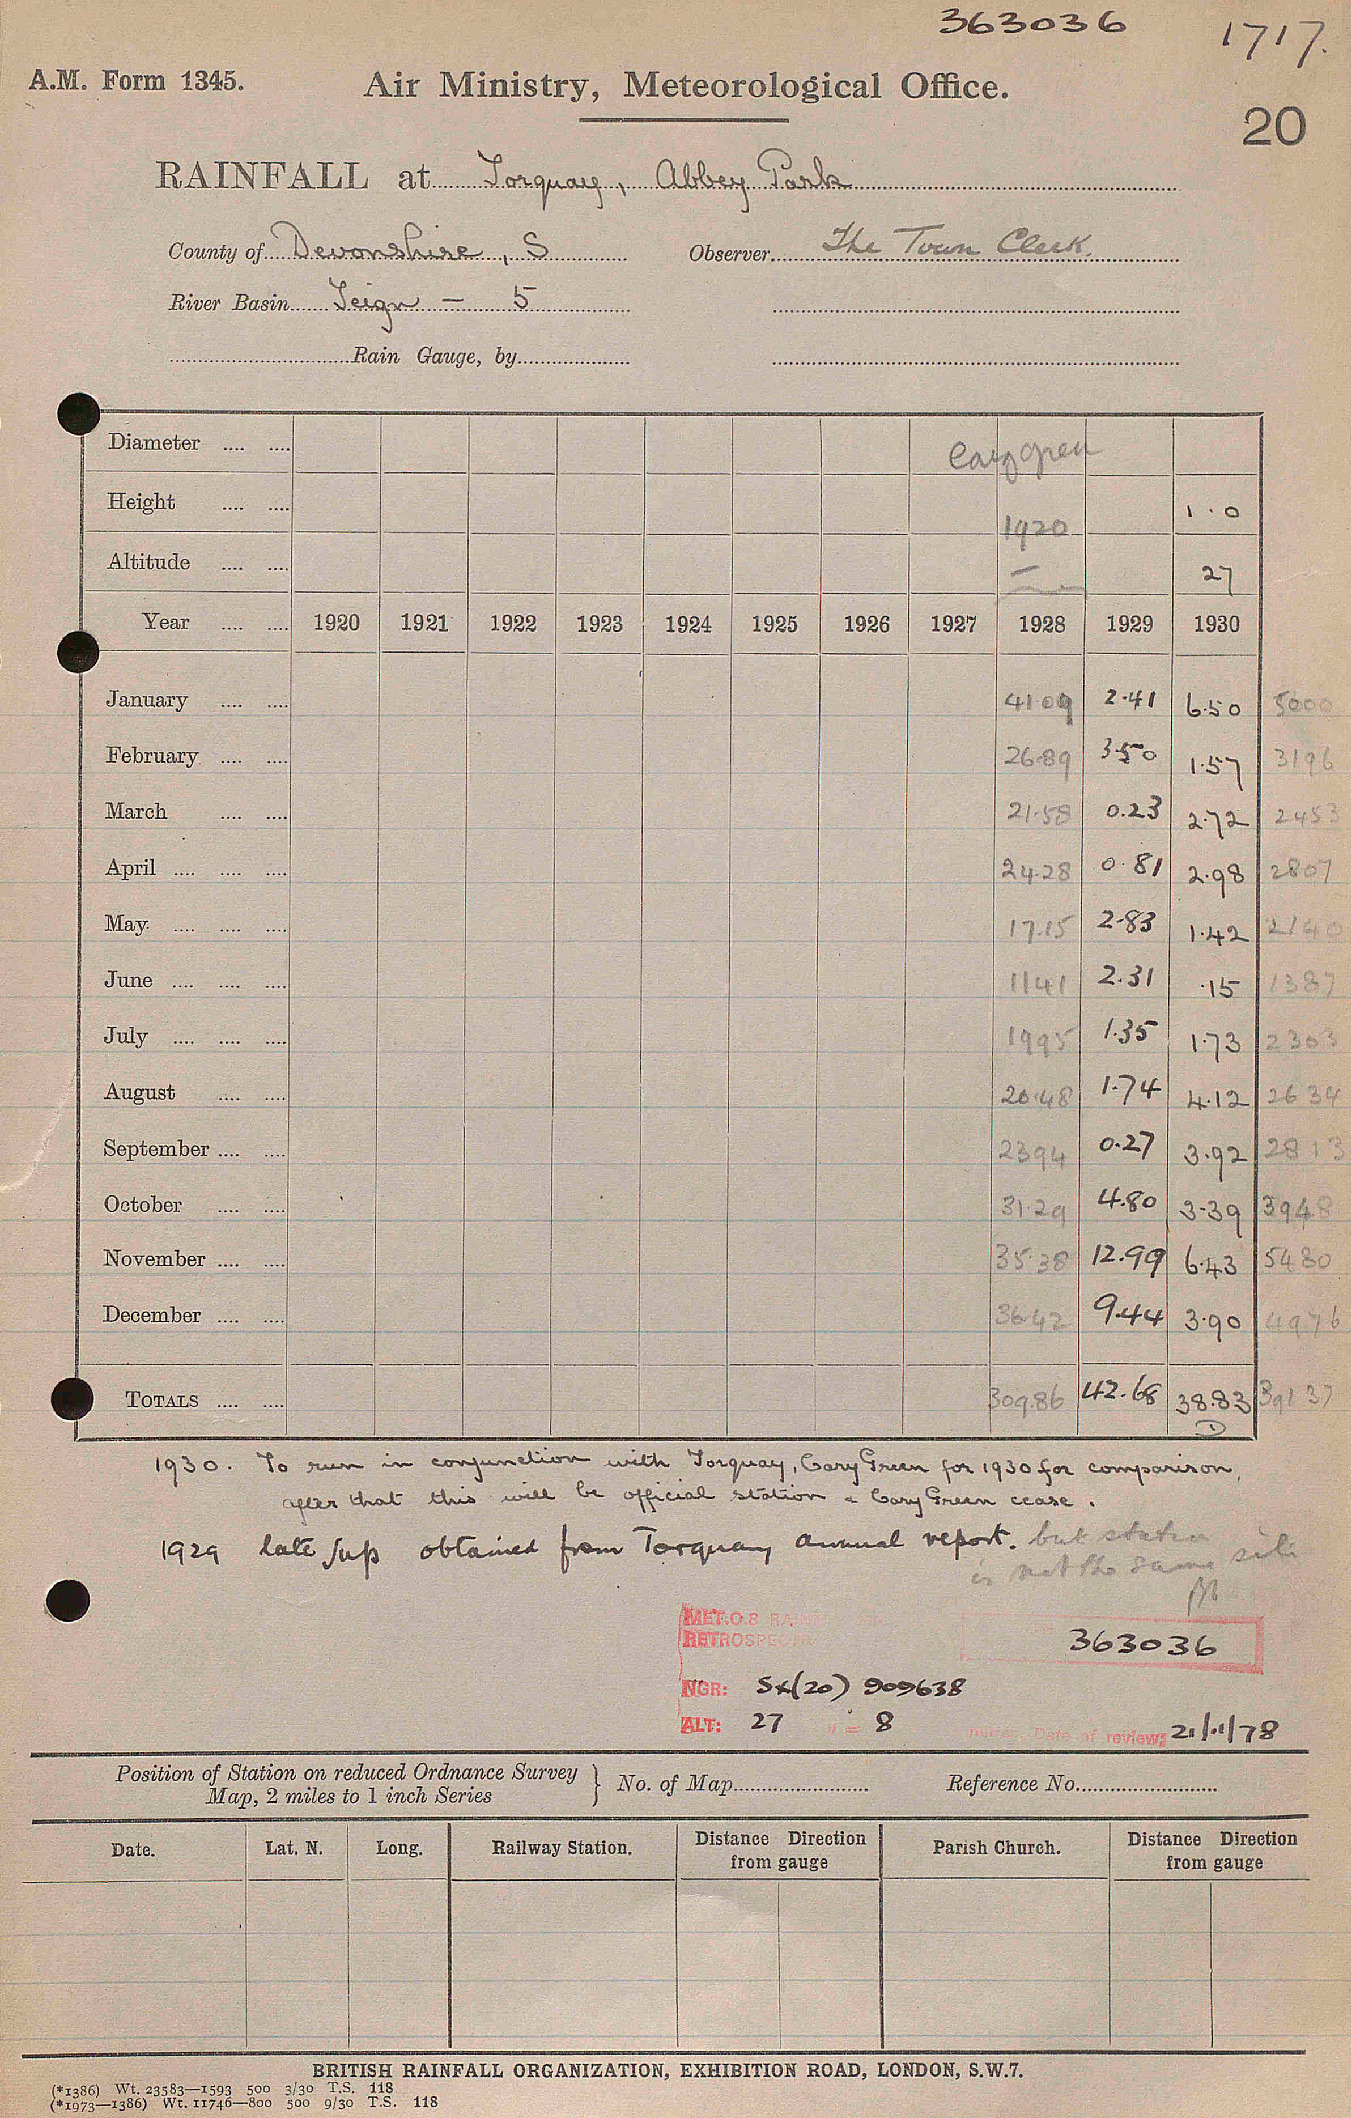 363036 1717.
A.M. Form 1345. Air Ministry, Meteorological Office.
20
RAINFALL at Torquay, Abbey Park
County of Devonshire, S Observer The Town Clerk.
River Basin Teign — 5
Rain Gauge, by
Diameter Cary Green
Height 1920 1.0
Altitude — 27
Year 1920 1921 1922 1923 1924 1925 1926 1927 1928 1929 1930
January 41.09 2.41 6.50 5000
February 26.89 3.50 1.57 3196
March 21.58 0.23 2.72 2453
April 24.28 0.81 2.98 2807
May 17.15 2.83 1.42 2140
June 1141 2.31 .15 1387
July 1995 1.35 1.73 2303
August 20.48 1.74 4.12 2634
September 2394 0.27 3.92 2813
October 31.29 4.80 3.39 3948
November 35.38 12.99 6.43 5480
December 36.42 9.44 3.90 4976
TOTALS 309.86 42.68 38.83 391 37
1930. To run in conjunction with Torquay, Cary Green for 1930 for comparison,
after that this will be official station & Cary Green cease.
1929 late sup obtained from Torquay annual report. but station
is not the same site
MET.O.8 RA
RETROSPECT 363036
NGR: SX(20) 909638
ALT: 27 = 8 Date of review: 21/11/78
Position of Station on reduced Ordnance Survey
Map, 2 miles to 1 inch Series } No. of Map Reference No.
Date. Lat. N. Long. Railway Station. Distance Direction from gauge Parish Church. Distance Direction from gauge
BRITISH RAINFALL ORGANIZATION, EXHIBITION ROAD, LONDON, S.W.7.
(*1386) Wt. 23583—1593 500 3/30 T.S. 118
(*1973—1386) Wt. 11746—800 500 9/30 T.S. 118